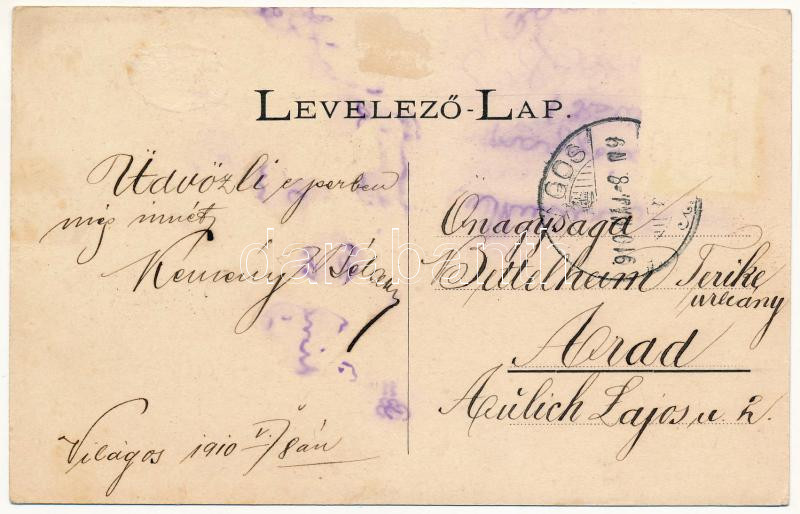 LEVELEZŐ-LAP.
Üdvözli e perben
még innét
Kemény Béla
Világos 1910 V/8án
GOS
910
Őnagysága
Bettelheim Terike
urleány
Arad
Aulich Lajos u. 2.
darabanth